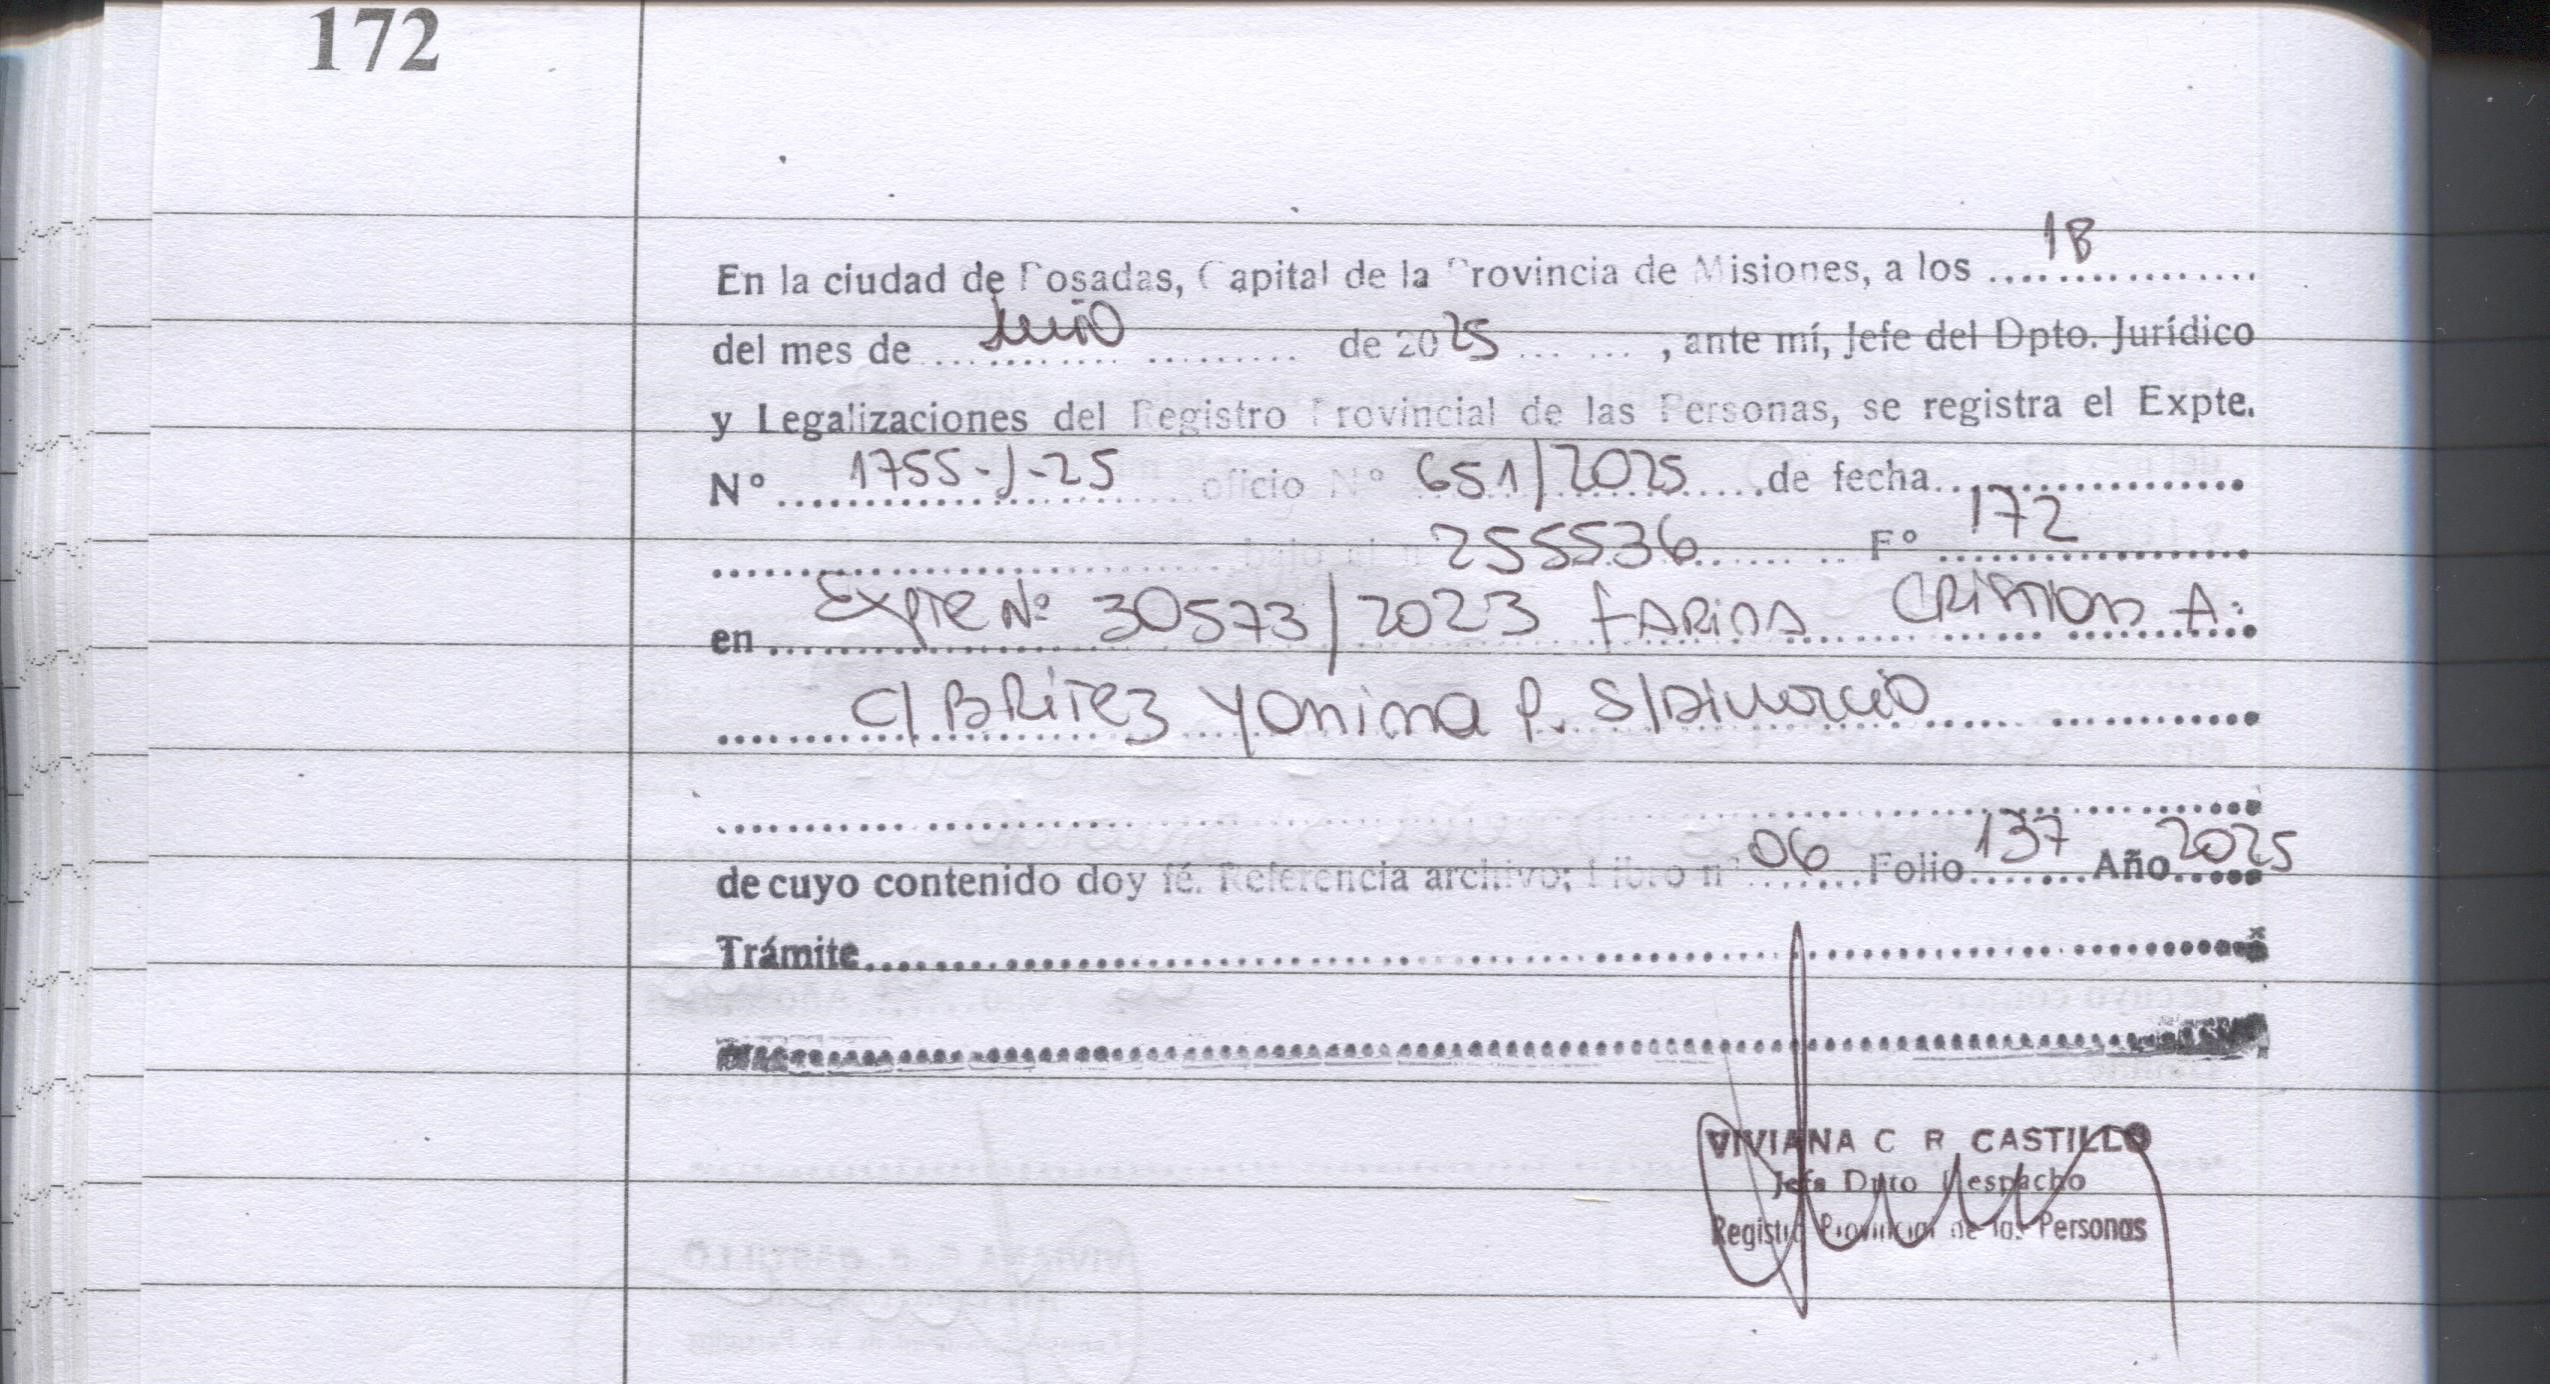 172
En la ciudad de Posadas, Capital de la Provincia de Misiones, a los 18
del mes de de 2025, ante mí, Jefe del Dpto. Jurídico
y Legalizaciones del Registro Provincial de las Personas, se registra el Expte.
Nº 1755-J-25 oficio Nº 651/2025 de fecha
bajo el n 255536 Fº 172
en Expte Nº 30573/2023 FARINA CRISTIAN A.
C/ BRITEZ Yanina P. S/Divorcio
de cuyo contenido doy fé. Referencia archivo: Libro nº 06 Folio 137 Año 2025
Trámite
VIVIANA C R CASTILLO
Jefa Dpto Despacho
Registro Provincial de las Personas